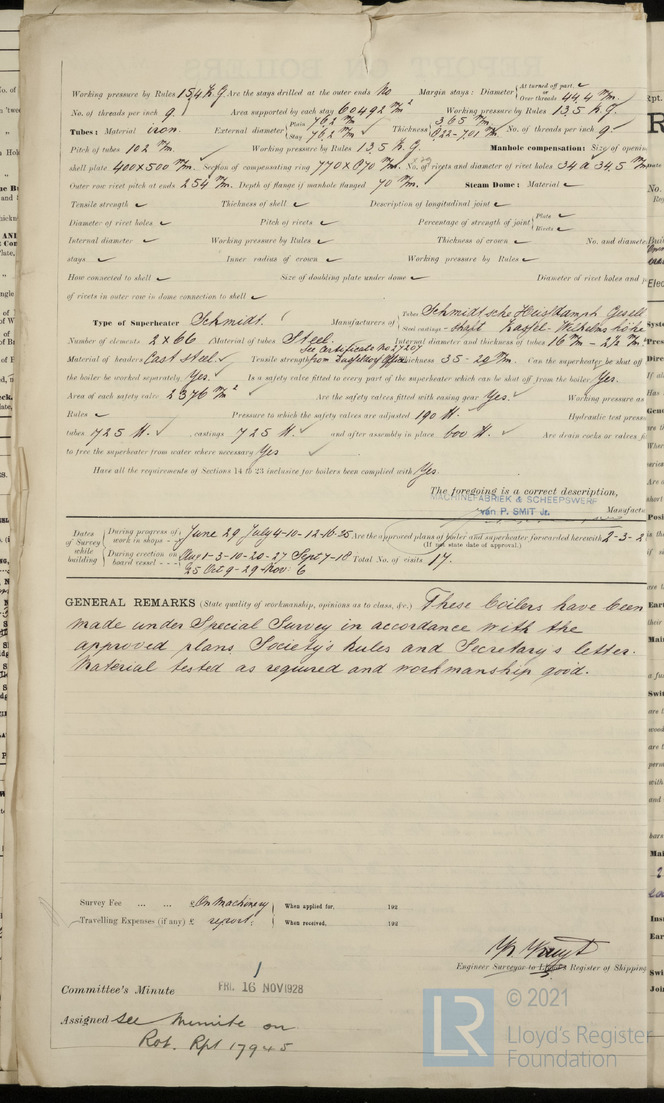 Working pressure by Rules 15,4 K.G. Are the stays drilled at the outer ends No Margin stays: Diameter { At turned off part, ✓ or Over threads 44,4 m/m.
No. of threads per inch 9. Area supported by each stay 60492 m/m² Working pressure by Rules 13,5 K.G.
Tubes: Material iron. External diameter { Plain 76,2 m/m Stay 76,2 m/m ✓ Thickness { 3,65 m/m. No. of threads per inch 9 ✓
Pitch of tubes 102 m/m. Working pressure by Rules 13,5 K.G. Manhole compensation: Size of openin
shell plate 400x500 m/m. Section of compensating ring 770x670 m/m. No. of rivets and diameter of rivet holes 34 a 34,5 m/m
Outer row rivet pitch at ends 254 m/m. Depth of flange if manhole flanged 70 m/m. Steam Dome: Material ✓
Tensile strength ✓ Thickness of shell ✓ Description of longitudinal joint ✓
Diameter of rivet holes ✓ Pitch of rivets ✓ Percentage of strength of joint { Plate ✓ Rivets ✓
Internal diameter ✓ Working pressure by Rules ✓ Thickness of crown ✓ No. and diamete
stays ✓ Inner radius of crown ✓ Working pressure by Rules ✓
How connected to shell ✓ Size of doubling plate under dome ✓ Diameter of rivet holes and p
of rivets in outer row in dome connection to shell ✓
Type of Superheater Schmidt. Manufacturers of { Tubes Schmidt'sche Heissdampf Gesell Steel castings - shaft Kassel-Wilhelmshöhe
Number of elements 2 x 66 Material of tubes Steel. Internal diameter and thickness of tubes 16 m/m - 2½ m/m.
Material of headers Cast Steel. ✓ Tensile strength See Certificate No 27207 from Dusseldorf Office Thickness 35-20 m/m. Can the superheater be shut off
the boiler be worked separately Yes. Is a safety valve fitted to every part of the superheater which can be shut off from the boiler Yes.
Area of each safety valve 2376 m/m² Are the safety valves fitted with easing gear Yes. ✓ Working pressure as
Rules ✓ Pressure to which the safety valves are adjusted 190 lb. ✓ Hydraulic test press
tubes 725 lb. ✓ castings 725 lb. ✓ and after assembly in place 600 lb. ✓ Are drain cocks or valves fi
to free the superheater from water where necessary Yes ✓
Have all the requirements of Sections 14 to 23 inclusive for boilers been complied with Yes.
The foregoing is a correct description,
MACHINEFABRIEK & SCHEEPSWERF
van P. SMIT Jr. Manufactu
Dates of Survey while building { During progress of work in shops - - June 29 July 4-10-12-16-25 Are the approved plans of boiler and superheater forwarded herewith 2-3-2
(If not state date of approval.)
During erection on board vessel - - - Aug 1-3-10-20-27 Sept 7-18 Total No. of visits 17.
25 Oct 9-29 Nov: 6
GENERAL REMARKS (State quality of workmanship, opinions as to class, &c.) These boilers have been
made under Special Survey in accordance with the
approved plans Society's Rules and Secretary's letter.
Material tested as required and workmanship good.
Survey Fee ... ... £ On machinery When applied for, 192
Travelling Expenses (if any) £ report. When received, 192
Engineer Surveyor to Lloyd's Register of Shipping
Committee's Minute FRI. 16 NOV 1928
Assigned See minute on
Rot. Rpt 17945
LR © 2021
Lloyd's Register
Foundation